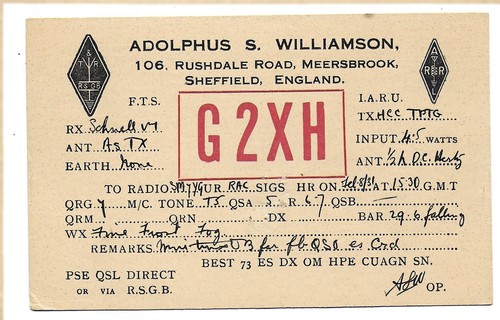 ADOLPHUS S. WILLIAMSON,
106, RUSHDALE ROAD, MEERSBROOK,
SHEFFIELD, ENGLAND.
T & R
R S G B
A
R R
L
F.T.S.
G2XH
I.A.R.U.
RX Schnell V1
TX HCC TPTG
ANT As TX
INPUT 4.5 WATTS
EARTH None
ANT ½λ D.C. Hertz
TO RADIO UR RAC SIGS HR ON Feb 8/31 AT 15.30 G.M.T
QRG 7 M/C. TONE T5 QSA 5 R 6-7 QSB —
QRM QRN -DX BAR 29.6 falling
WX Fine Frost Fog
REMARKS OB for fb QSO es Crd
BEST 73 ES DX OM HPE CUAGN SN.
PSE QSL DIRECT
OR VIA R.S.G.B.
ASW OP.